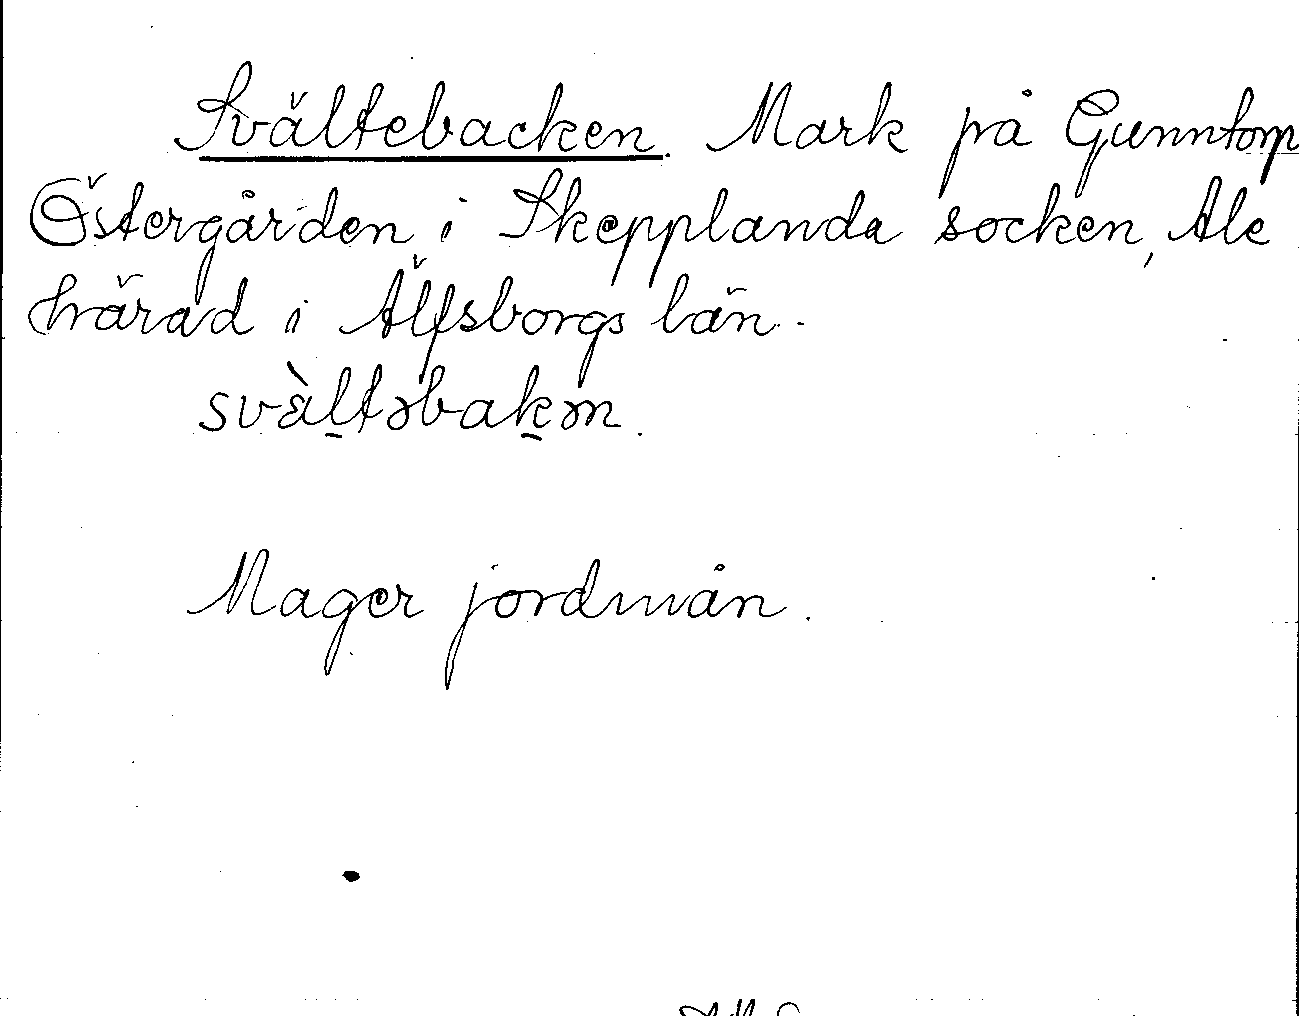 Svältebacken. Mark på Gunntorp
Östergården i Skepplanda socken, Ale
härad i Älfsborgs län.
svàl̠təbak̠ən.
Mager jordmån.